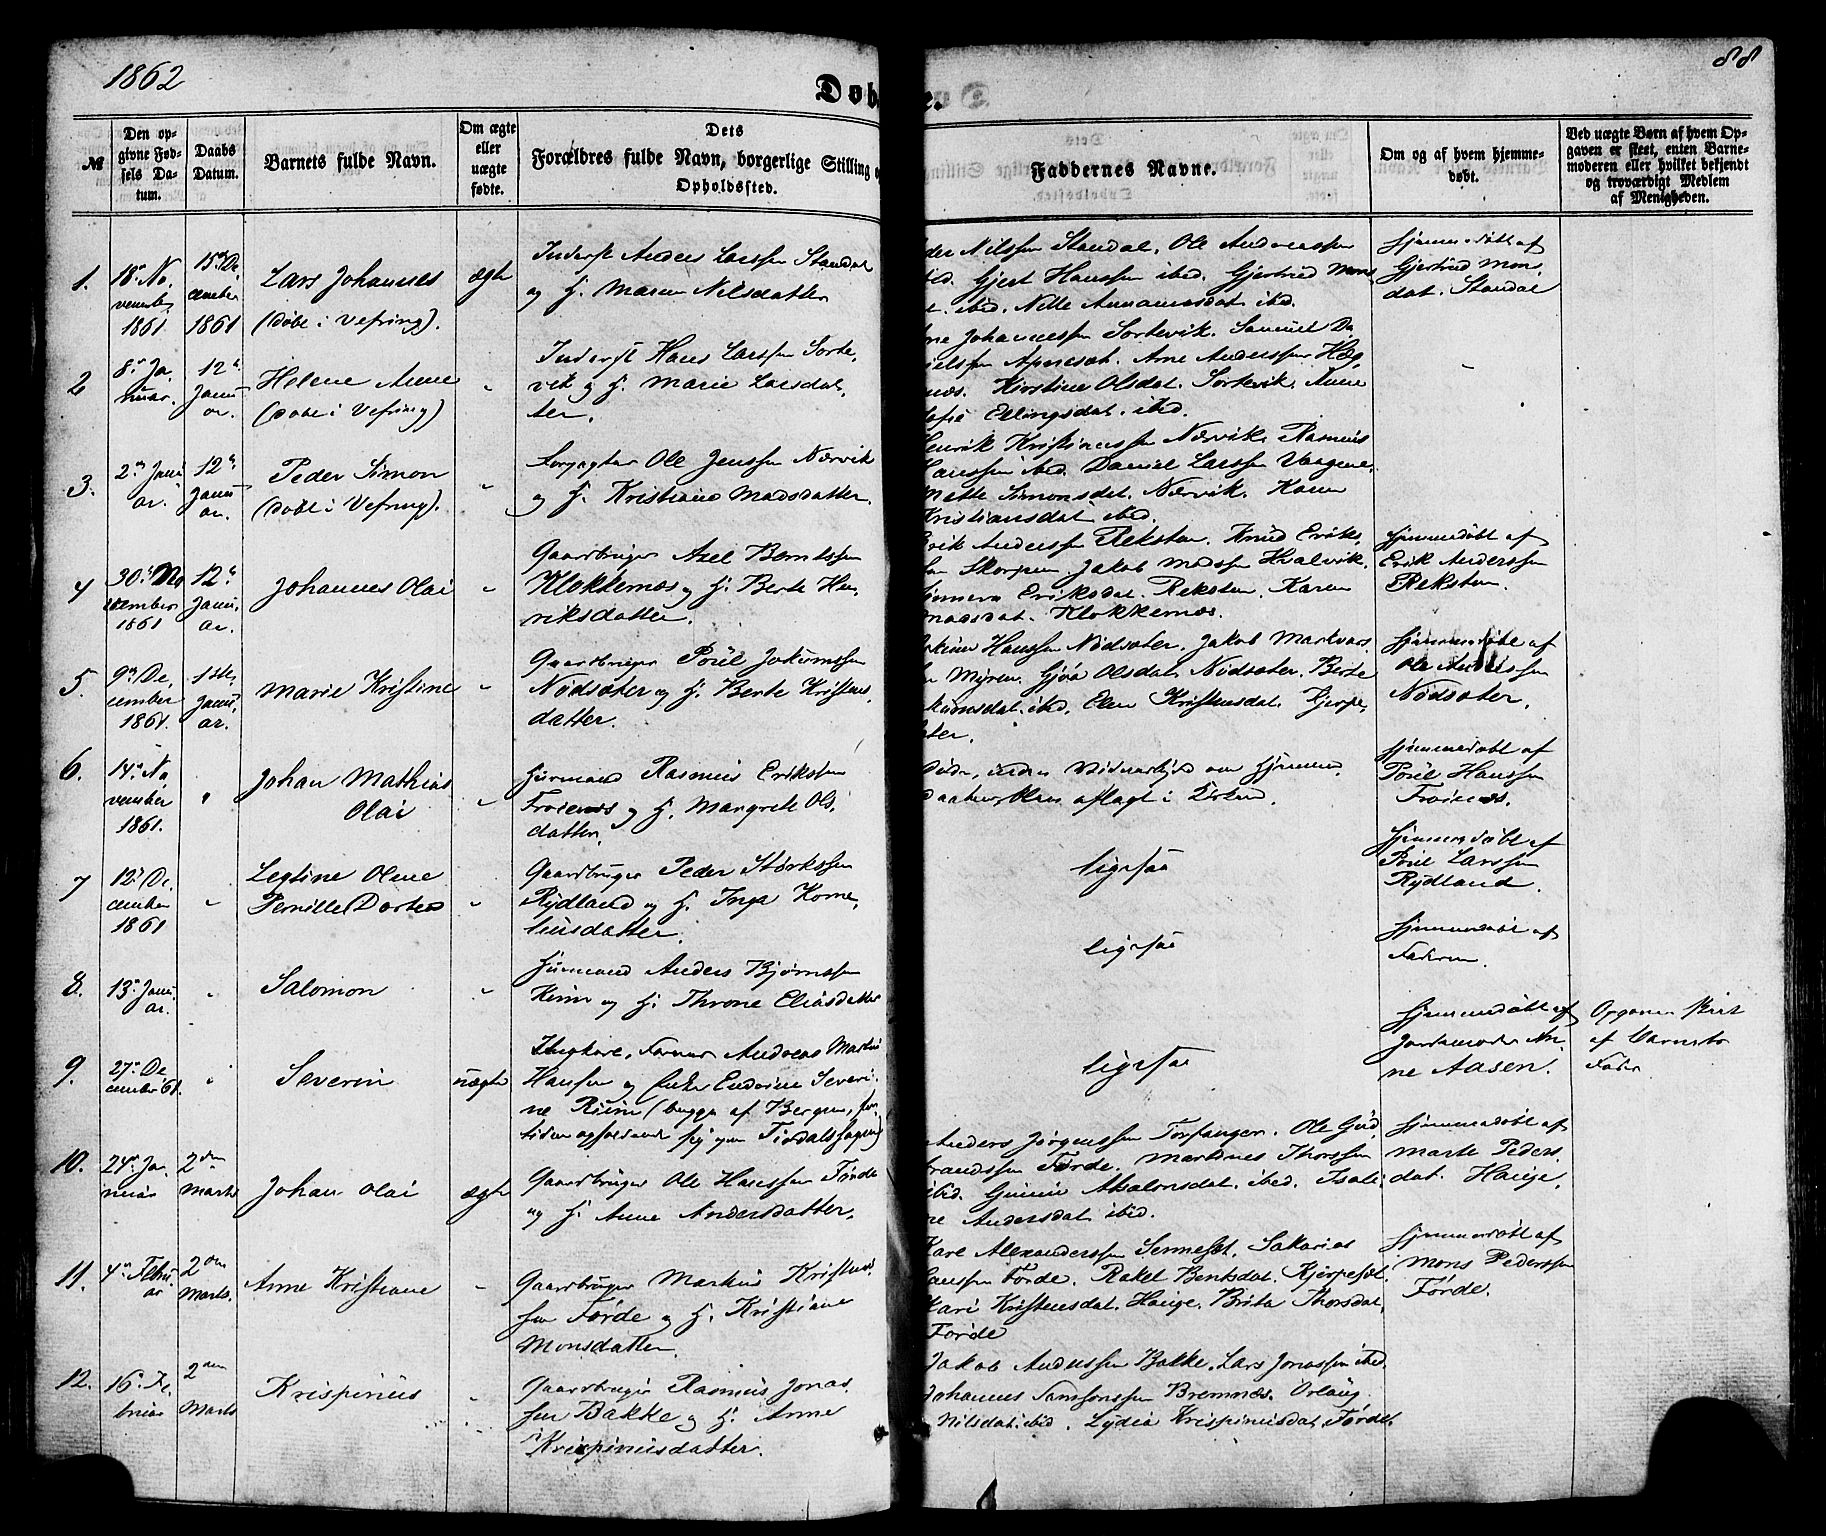 1862
88
Døb
e.
№
Den op-
givne Fød-
sels Da-
tum.
Daabs
Datum.
Barnets fulde Navn.
Om ægte
eller
uægte
fødte.
Dets
Forældres fulde Navn, borgerlige Stilling o
Opholdssted.
Faddernes Navne.
Om og af hvem hjemme-
døbt.
Ved uægte Børn af hvem Op-
gaven er skeet, enten Barne-
moderen eller hvilket bekjendt
og troværdigt Medlem
af Menigheden.
1.
18de No.
vember
1861
15de De
cember
1861
Lars Johannes
(døbt i Vefring).
ægte
Inderst Anders Larssen Standal
og H. Maren Nilsdatter
der Nilssen Standal. Ole Andreassen
ibid. Gjert Hanssen ibid. Gjertrud Mons
t. ibid. Nille Annamasdat ibid.
Hjemmedøbt af
Gjertrud Mons.
dat. Standal
2
8de Ja.
nuar.
12te
Janu
ar.
Helene Anne
(døbt i Vefring)
"
Inderst Hans Larssen Sorte,
vik og H. Marie Larsdat,
ter.
ne Johannessen Sortevik. Samuel Da
nielssen Apneset. Arne Anderssen Hæg,
næs. Kirstine Olsdat. Sortevik. Anne
Sofie Ellingsdat. ibid.
3.
2den Janu
ar.
12te
Janu
ar.
Peder Simon
(døbt i Vefring).
"
Forpagter Ole Jenssen Nærvik
og H. Kristiane Madsdatter.
Henrik Kristianssen Nærvik. Rasmus
Hanssen ibid. Daniel Larssen Vaagene.
Mette Simonsdat. Nærvik. Karen
Kristiansdat ibid.
4
30te No
vember
1861
12te
Janu,
ar.
Johannes Olai
"
Gaardbruger Axel Berntssen
Klokkernæs og H. Berte Hen
riksdatter.
Erik Anderssen Reksten. Knud Eriks,
sen Skorpen. Jakob Madssen Hvalvik.
Eriksdat. Reksten. Karen
Madsdat. Klokkernæs.
Hjemmedøbt af
Erik Anderssen
Reksten.
5.
9de De,
cember
1861.
1ste
Janu,
ar.
Marie Kristine
"
Gaardbruger Poul Jokumssen
Nødsæter og H. Berte Kristens
datter.
Jokum Hanssen Nødsæter. Jakob Markus
n Myren. Gjøa Olsdat Nødsæter. Berte
ibid. Elen Kristensdat. Kjerpe,
seter.
Hjemmedøbt af
Ole Anderssen
Nødsæter.
6.
14de No
vember
1861.
"
Johan Mathias
Olai
"
Huusmand Rasmus Erikssen
Troienæs og H. Margrete Ols,
datter.
Døde, inden Vidnesbyrd om Hjemme,
daaben blev aflagt i Kirken.
Hjemmedøbt af
Poul Hanssen
Troienæs.
7
12te De.
cember
1861
"
Legtine Olene
Pernille Dortea
"
Gaardbruger Peder Størkssen
Rydland og H. Inga Korne,
liusdatter.
ligesaa
Hjemmedøbt af
Poul Larssen
Rydland.
8.
13de Janu.
ar.
"
Salomon
"
Huusmand Anders Bjørnssen
Heim og H. Throne Eliasdatter
ligesaa
Hjemmedøbt af
Faderen.
9.
27de De
cember 61.
"
Severin
uægte
Ungkarl, Farver Andreas Martin
Hansen og Enke Endrine Severi,
ne Riim (begge af Bergen, for
tiden opholdende sig paa
ligesaa
Hjemmedøbt af
Jordemoder An,
ne Aasen.
Opgaven skeet
af Barnets
Fader
10.
24de Ja.
nuar
2den
Marts
Johan Olai
ægte
Gaardbruger Ole Hanssen Førde
og H. Anne Andersdatter.
Anders Jørgenssen Torfanger. Ole Gud,
brandssen Førde. Martines Thorssen
ibid. Gunnie Absalonsdat. ibid. Isali,
ne Andersdat ibid.
Hjemmedøbt af
Marte Peders.
dat. Hauge.
11.
4de Febru
ar
2den
Marts.
Anne Kristiane
"
Gaardbruger Markus Kristens.
sen Førde og H. Kristiane
Monsdatter.
Kare Alexanderssen Senneset. Sakarias
Hanssen Førde. Rakel Bentsdat. Kjerpeset.
Kari Kristensdat. Hauge. Brita Thorsdat,
Førde
Hjemmedøbt af
Mons Pederssen
Førde.
12.
16de Fe
bruar
2den
Marts
Krispinus
"
Gaardbruger Rasmus Jonas.
sen Bakke og H. Anne
Krispinusdatter.
Jakob Anderssen Bakke. Lars Jonassen ibid.
Johannes Samsonssen Bremnæs. Orlaug
Nilsdat. ibid. Lydia Krispinusdat. Førde.